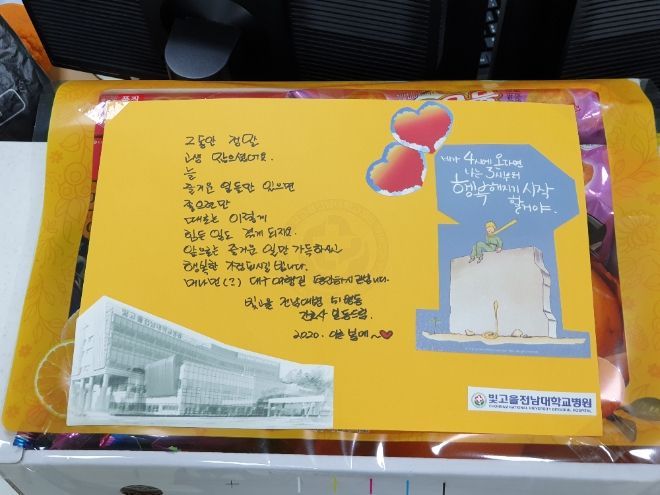 그동안 정말
고생 많으셨어요.
늘
즐거운 일들만 있으면
좋으련만
때로는 이렇게
힘든 일도 겪게 되지요.
앞으로는 즐거운 일만 가득하시고
행복한 가정되시길 빕니다.
대구
빛고을 전남대병원
간호사 일동드림.
2020. 어느 봄에~
네가 4시에 온다면
나는 3시부터
행복해지기 시작
할거야.
빛고을전남대학교병원
빛고을전남대학교병원
CHONNAM NATIONAL UNIVERSITY BITGOEUL HOSPITAL